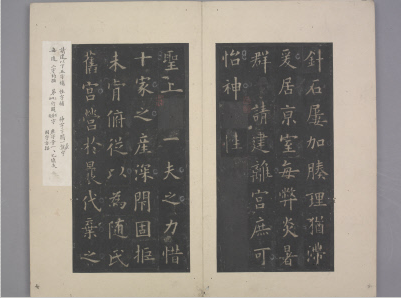 針石屢加腠理猶滯
爰居京室每弊炎暑
群 請建離宮庶可
怡神 性
聖上 一夫之力惜
十家之產深閉固拒
未肯俯從以為隨氏
舊宮營於曩代棄之